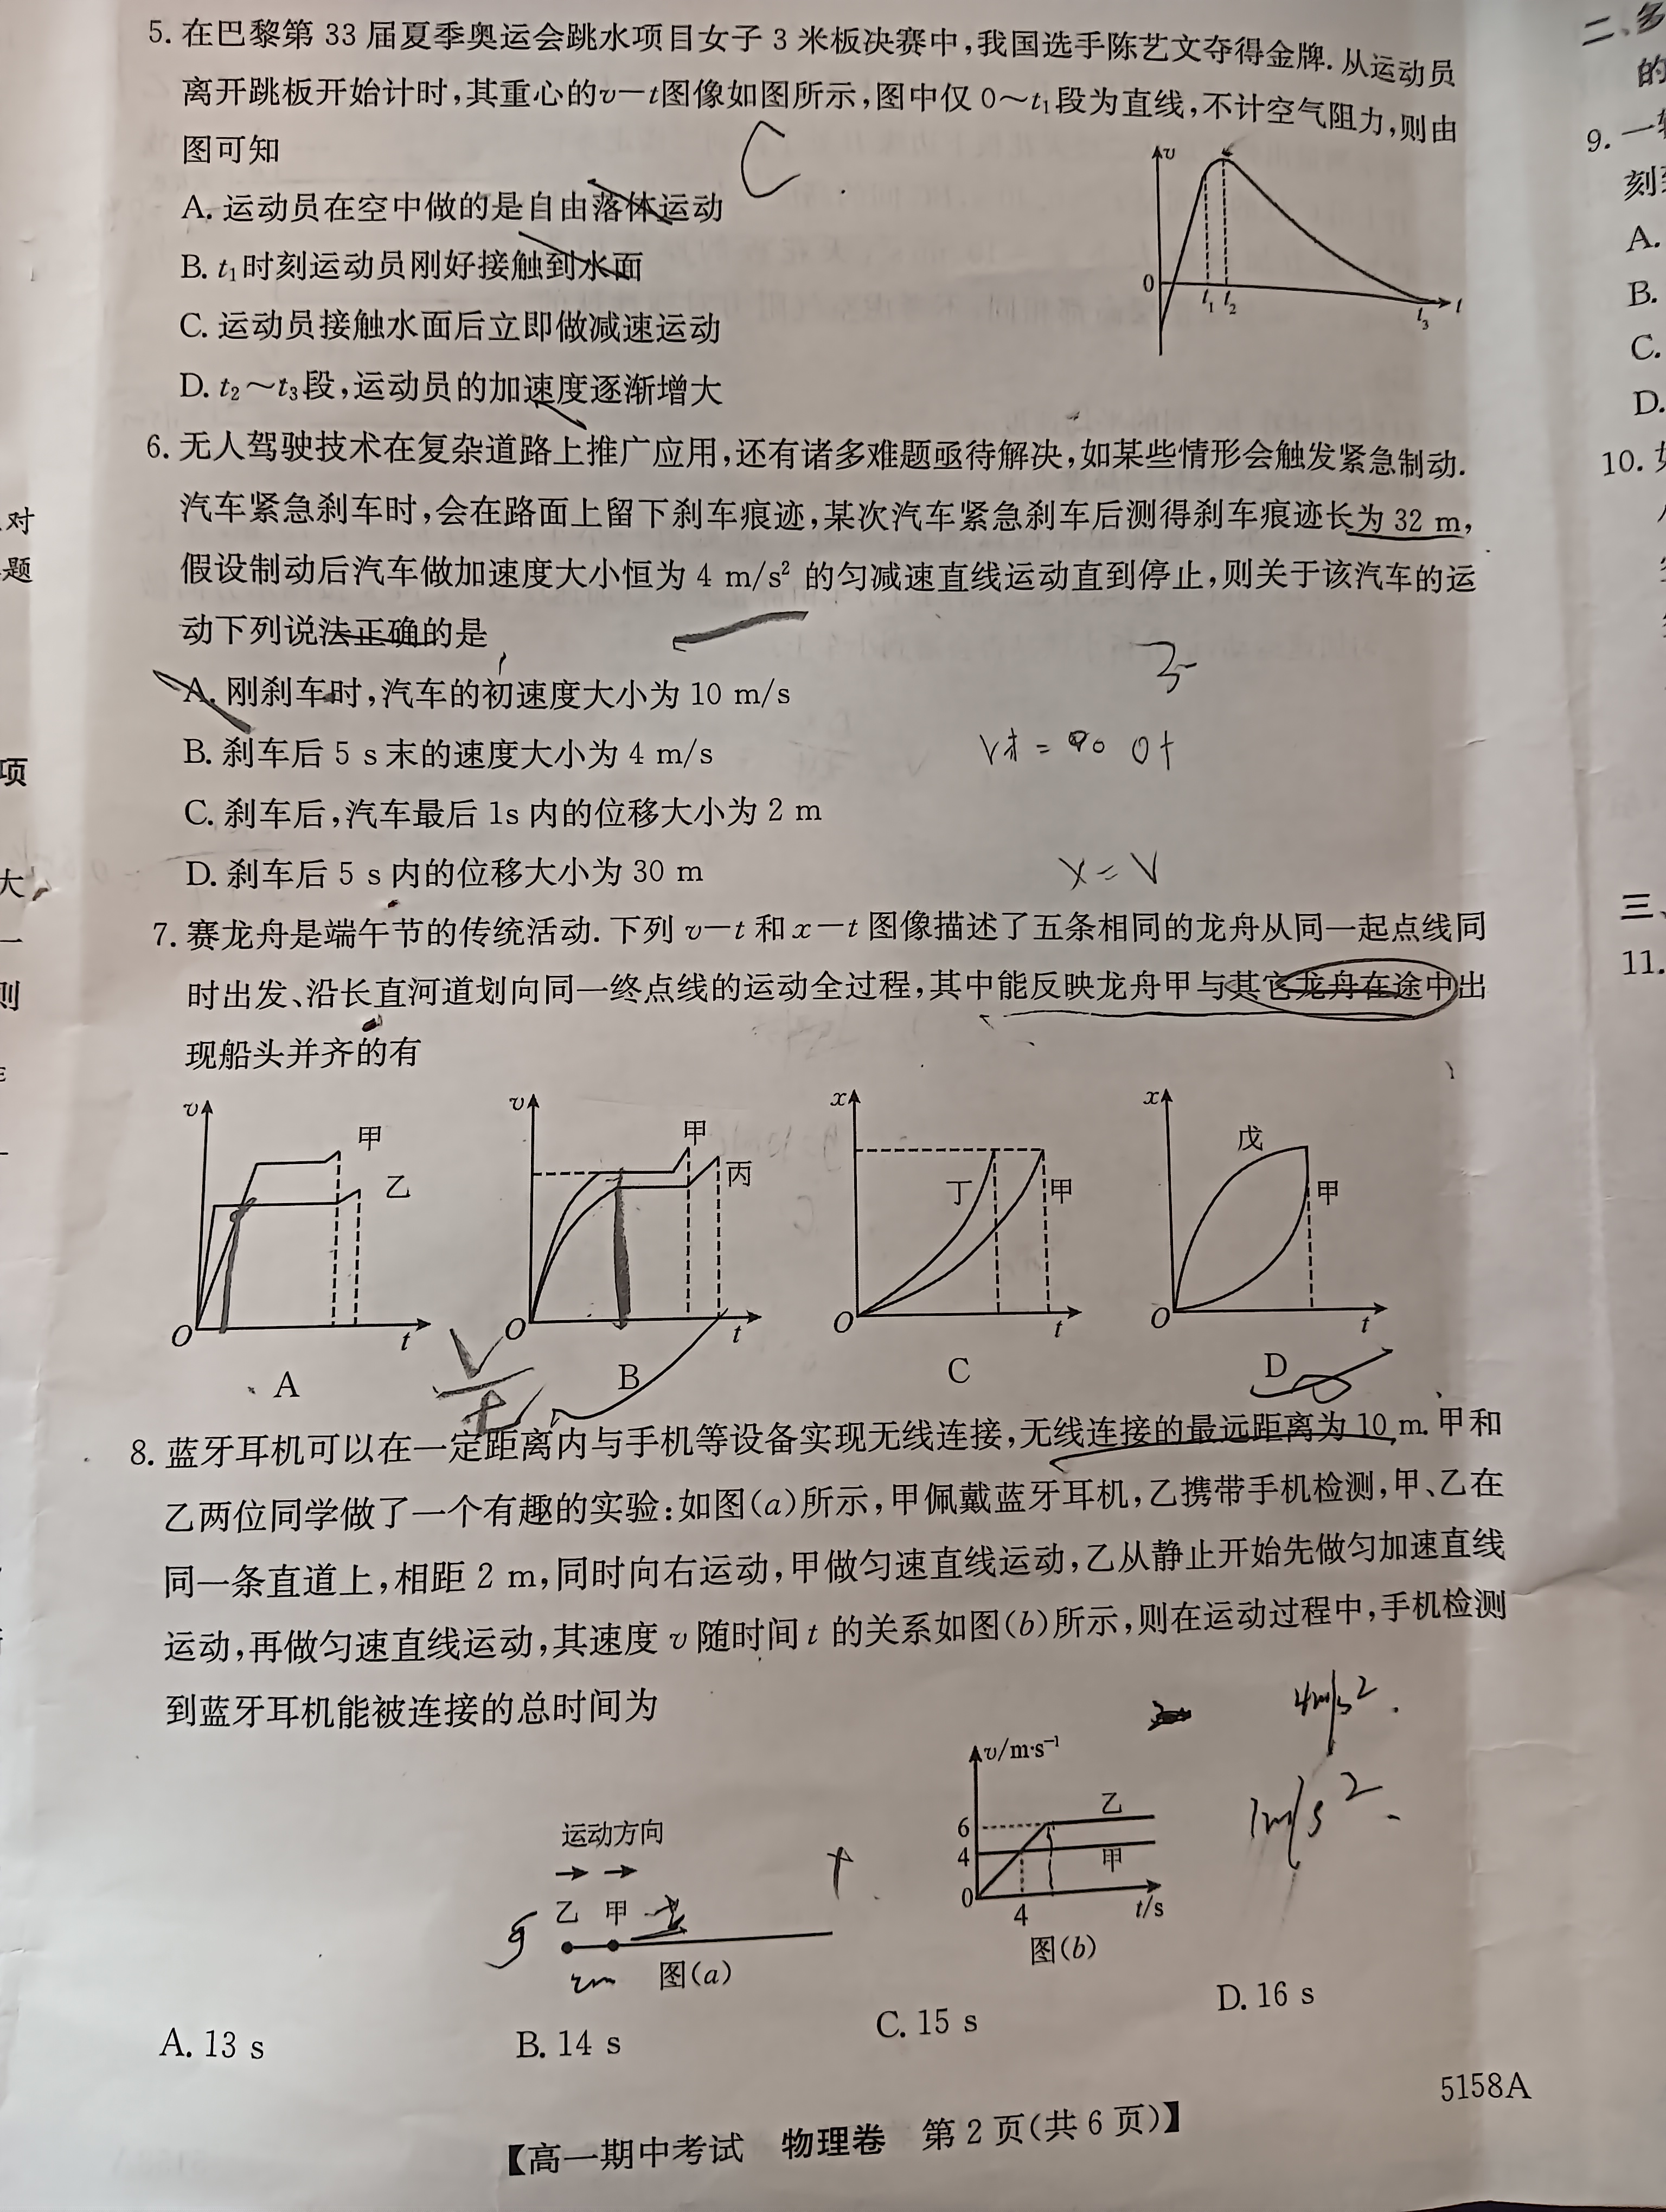 5. 在巴黎第 33 届夏季奥运会跳水项目女子 3 米板决赛中,我国选手陈艺文夺得金牌. 从运动员
离开跳板开始计时,其重心的v-t图像如图所示,图中仅 0～t₁段为直线,不计空气阻力,则由
图可知
C
A. 运动员在空中做的是自由落体运动
B. t₁时刻运动员刚好接触到水面
C. 运动员接触水面后立即做减速运动
D. t₂～t₃段,运动员的加速度逐渐增大
v
0
t₁ t₂
t₃
t
6. 无人驾驶技术在复杂道路上推广应用,还有诸多难题亟待解决,如某些情形会触发紧急制动.
汽车紧急刹车时,会在路面上留下刹车痕迹,某次汽车紧急刹车后测得刹车痕迹长为 32 m,
假设制动后汽车做加速度大小恒为 4 m/s² 的匀减速直线运动直到停止,则关于该汽车的运
动下列说法正确的是
A. 刚刹车时,汽车的初速度大小为 10 m/s
B. 刹车后 5 s 末的速度大小为 4 m/s
C. 刹车后,汽车最后 1s 内的位移大小为 2 m
D. 刹车后 5 s 内的位移大小为 30 m
x = V
7. 赛龙舟是端午节的传统活动. 下列 v-t 和 x-t 图像描述了五条相同的龙舟从同一起点线同
时出发、沿长直河道划向同一终点线的运动全过程,其中能反映龙舟甲与其它龙舟在途中出
现船头并齐的有
v
甲
乙
O
t
A
v
甲
丙
O
t
B
x
丁
甲
O
t
C
x
戊
甲
O
t
D
V
t
8. 蓝牙耳机可以在一定距离内与手机等设备实现无线连接,无线连接的最远距离为 10 m. 甲和
乙两位同学做了一个有趣的实验:如图(a)所示,甲佩戴蓝牙耳机,乙携带手机检测,甲、乙在
同一条直道上,相距 2 m,同时向右运动,甲做匀速直线运动,乙从静止开始先做匀加速直线
运动,再做匀速直线运动,其速度 v 随时间 t 的关系如图(b)所示,则在运动过程中,手机检测
到蓝牙耳机能被连接的总时间为
4m/s².
1m/s².
运动方向
乙 甲
2m
图(a)
v/m·s⁻¹
6
4
0
乙
甲
4
t/s
图(b)
A. 13 s
B. 14 s
C. 15 s
D. 16 s
5158A
【高一期中考试 物理卷 第 2 页(共 6 页)】
对
题
项
大
一
则
二、多
的
9. 一
A.
B.
C.
D.
10.
三、
11.